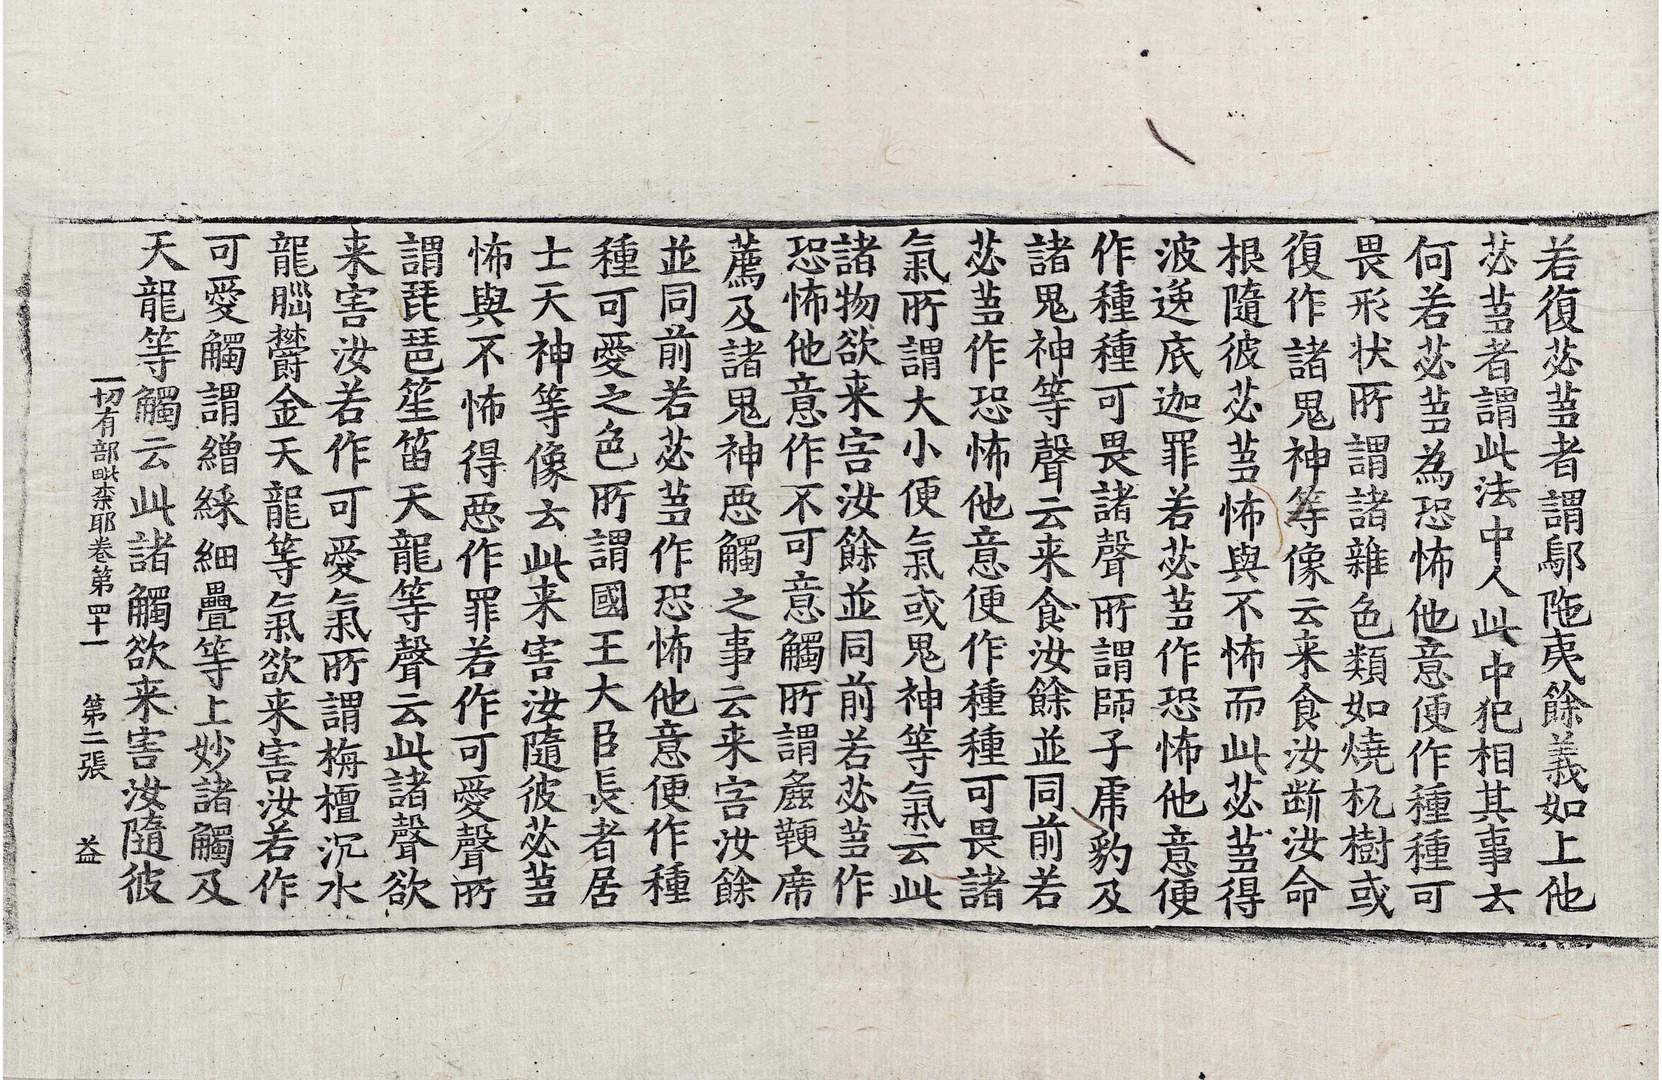 若復苾芻者謂鄔陁夷餘義如上他
苾芻者謂此法中人此中犯相其事云
何若苾芻為恐怖他意便作種種可
畏形状所謂諸雜色類如燒杌樹或
復作諸鬼神等像云来食汝断汝命
根隨彼苾芻怖與不怖而此苾芻得
波逸底迦罪若苾芻作恐怖他意便
作種種可畏諸聲所謂師子虎豹及
諸鬼神等聲云来食汝餘並同前若
苾芻作恐怖他意便作種種可畏諸
氣所謂大小便氣或鬼神等氣云此
諸物欲来害汝餘並同前若苾芻作
恐怖他意作不可意觸所謂麁鞕席
薦及諸鬼神惡觸之事云来害汝餘
並同前若苾芻作恐怖他意便作種
種可愛之色所謂國王大臣長者居
士天神等像云此来害汝隨彼苾芻
怖與不怖得惡作罪若作可愛聲所
謂琵琶笙笛天龍等聲云此諸聲欲
来害汝若作可愛氣所謂栴檀沉水
龍腦欝金天龍等氣欲来害汝若作
可愛觸謂繒綵細疊等上妙諸觸及
天龍等觸云此諸觸欲来害汝隨彼
一切有部毗柰耶卷第四十一 第二張 益